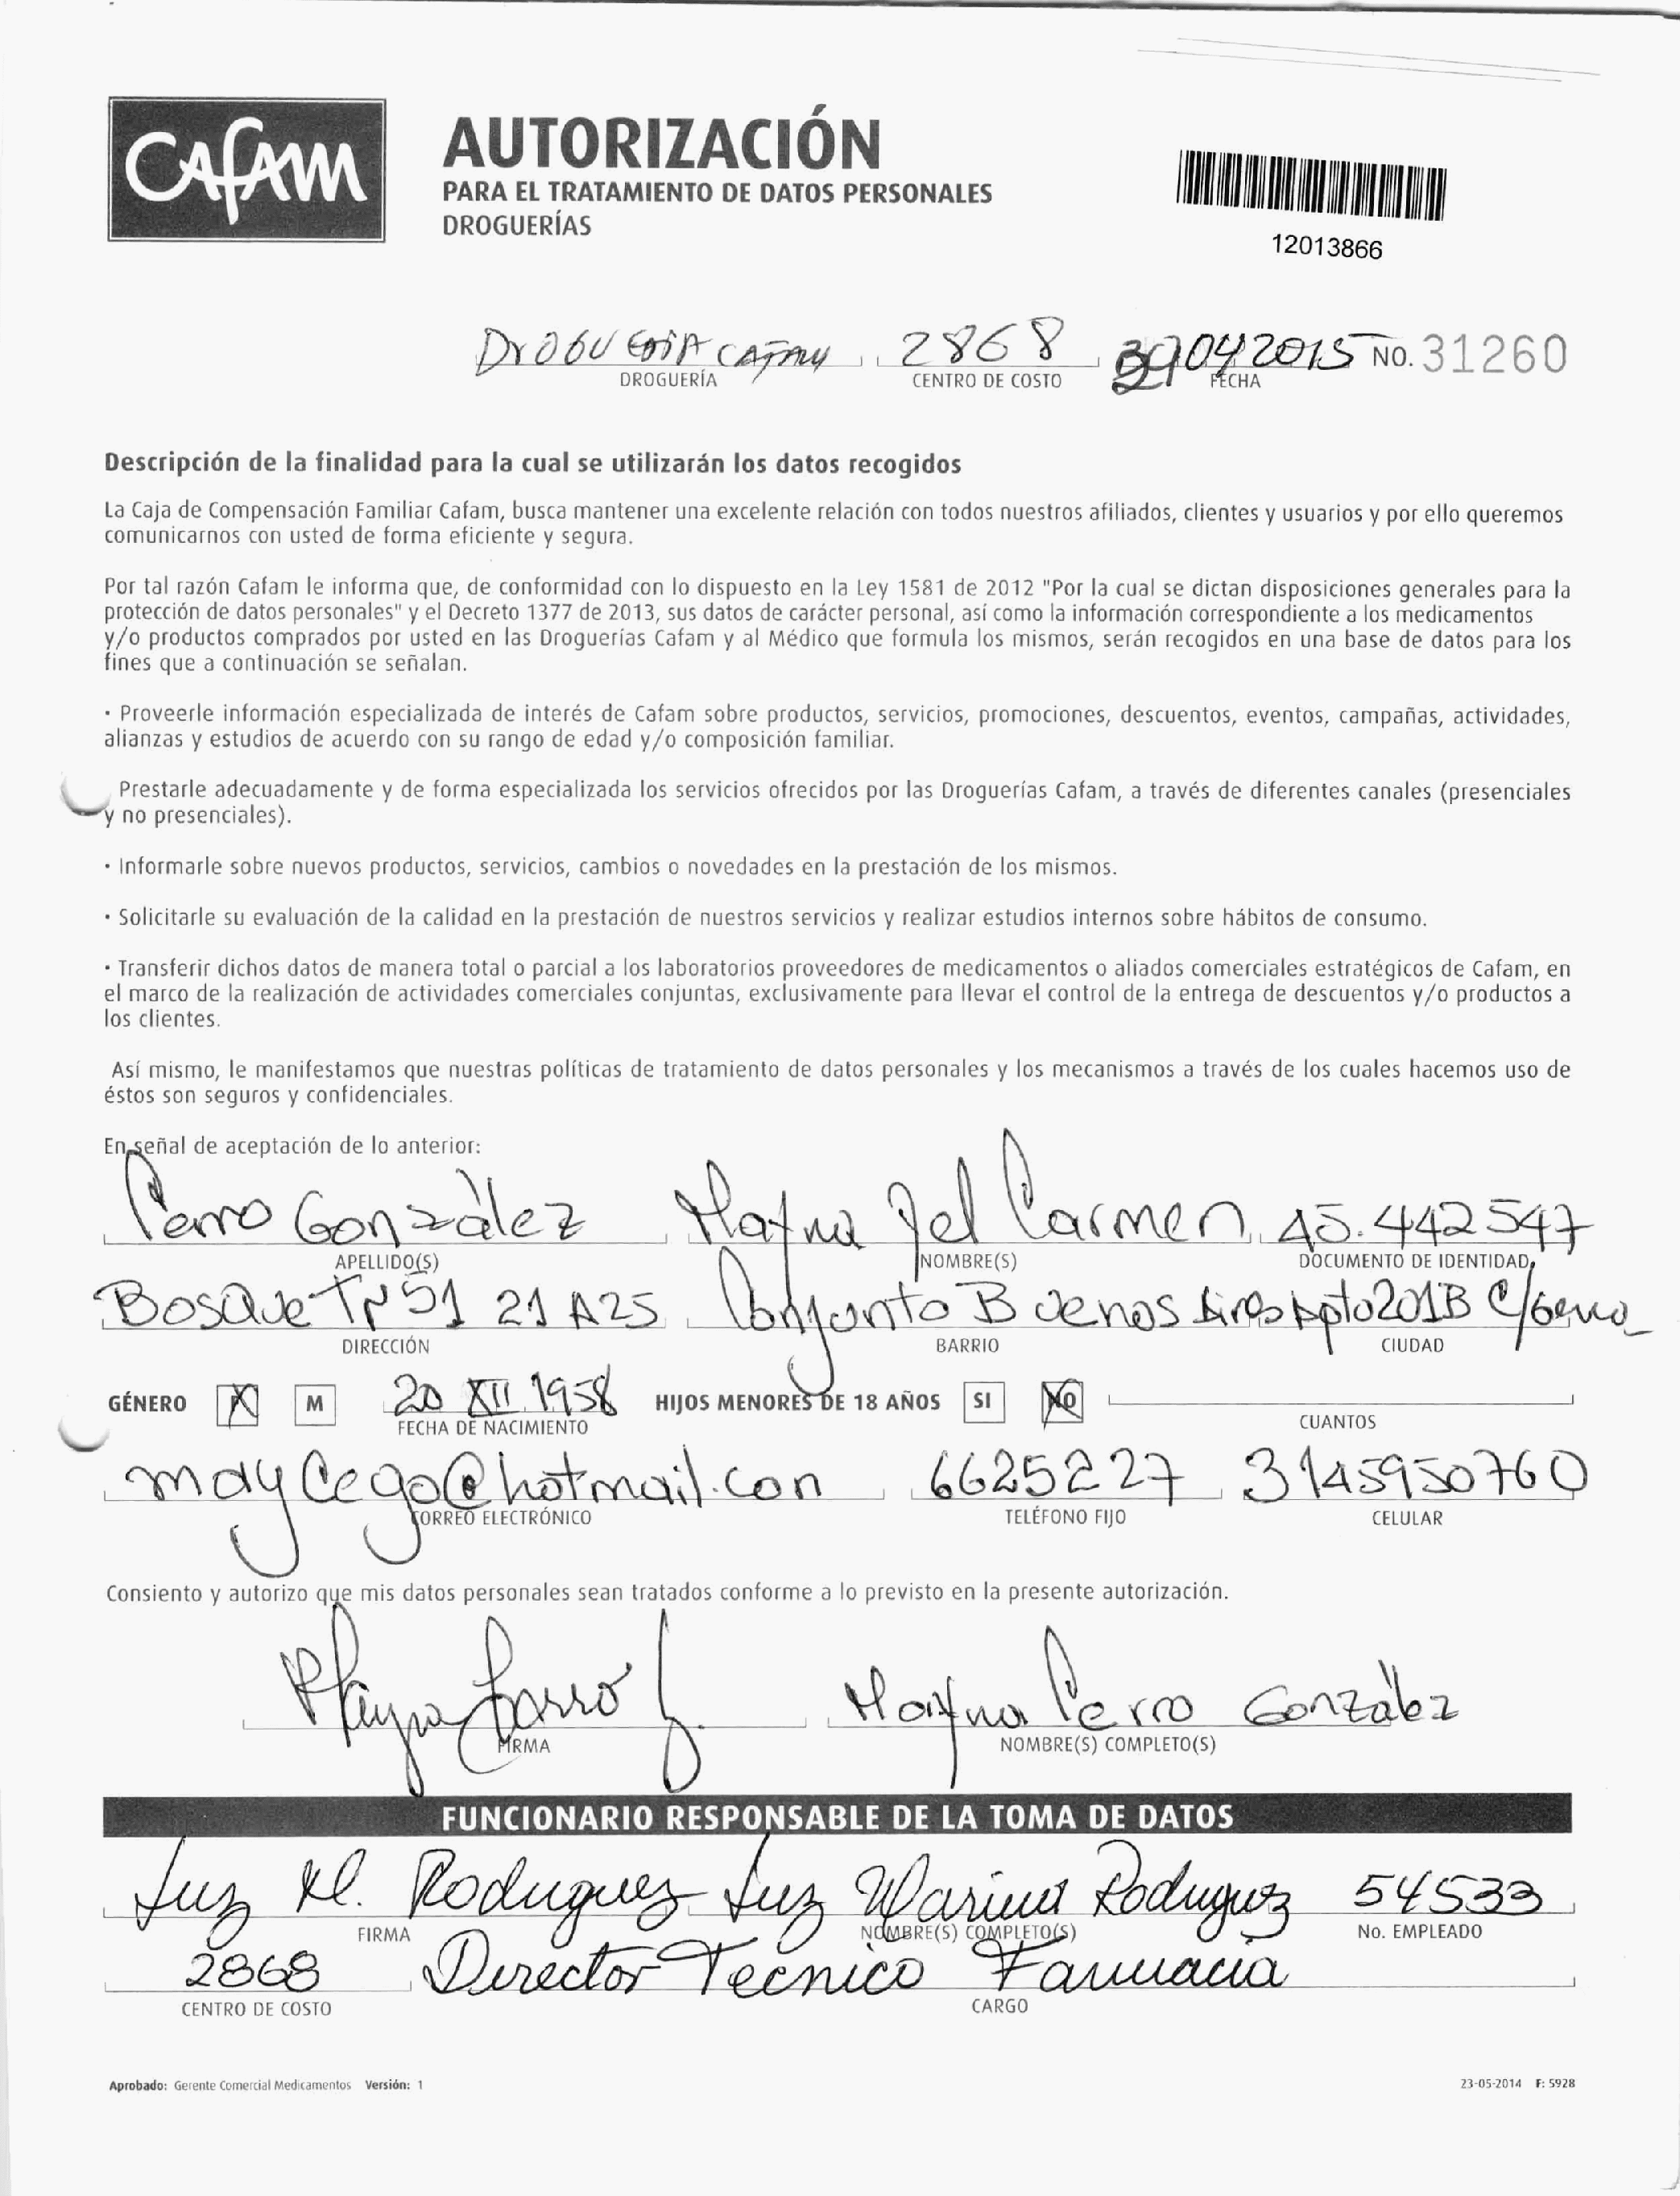 CAFAM
AUTORIZACIÓN
PARA EL TRATAMIENTO DE DATOS PERSONALES
DROGUERÍAS
12013866
CAFAM 2868 04 2015 No. 31260
DROGUERÍA CENTRO DE COSTO FECHA
Descripción de la finalidad para la cual se utilizarán los datos recogidos
La Caja de Compensación Familiar Cafam, busca mantener una excelente relación con todos nuestros afiliados, clientes y usuarios y por ello queremos
comunicarnos con usted de forma eficiente y segura.
Por tal razón Cafam le informa que, de conformidad con lo dispuesto en la Ley 1581 de 2012 "Por la cual se dictan disposiciones generales para la
protección de datos personales" y el Decreto 1377 de 2013, sus datos de carácter personal, así como la información correspondiente a los medicamentos
y/o productos comprados por usted en las Droguerías Cafam y al Médico que formula los mismos, serán recogidos en una base de datos para los
fines que a continuación se señalan.
· Proveerle información especializada de interés de Cafam sobre productos, servicios, promociones, descuentos, eventos, campañas, actividades,
alianzas y estudios de acuerdo con su rango de edad y/o composición familiar.
Prestarle adecuadamente y de forma especializada los servicios ofrecidos por las Droguerías Cafam, a través de diferentes canales (presenciales
y no presenciales).
· Informarle sobre nuevos productos, servicios, cambios o novedades en la prestación de los mismos.
· Solicitarle su evaluación de la calidad en la prestación de nuestros servicios y realizar estudios internos sobre hábitos de consumo.
· Transferir dichos datos de manera total o parcial a los laboratorios proveedores de medicamentos o aliados comerciales estratégicos de Cafam, en
el marco de la realización de actividades comerciales conjuntas, exclusivamente para llevar el control de la entrega de descuentos y/o productos a
los clientes.
Así mismo, le manifestamos que nuestras políticas de tratamiento de datos personales y los mecanismos a través de los cuales hacemos uso de
éstos son seguros y confidenciales.
En señal de aceptación de lo anterior:
González del Carmen 45.442547
APELLIDO(S) NOMBRE(S) DOCUMENTO DE IDENTIDAD
Bosque Tr 51 21 A25 Conjunto Buenos Aires Apto 201B C/gena
DIRECCIÓN BARRIO CIUDAD
GÉNERO M 20 XII 1958 HIJOS MENORES DE 18 AÑOS SI NO
FECHA DE NACIMIENTO CUANTOS
maycego@hotmail.com 6625227 3145950760
CORREO ELECTRÓNICO TELÉFONO FIJO CELULAR
Consiento y autorizo que mis datos personales sean tratados conforme a lo previsto en la presente autorización.
González
FIRMA NOMBRE(S) COMPLETO(S)
FUNCIONARIO RESPONSABLE DE LA TOMA DE DATOS
Luz M. Rodriguez Luz Marina Rodriguez 54533
FIRMA NOMBRE(S) COMPLETO(S) No. EMPLEADO
2868 Director Tecnico Farmacia
CENTRO DE COSTO CARGO
Aprobado: Gerente Comercial Medicamentos Versión: 1 23-05-2014 F: 5928